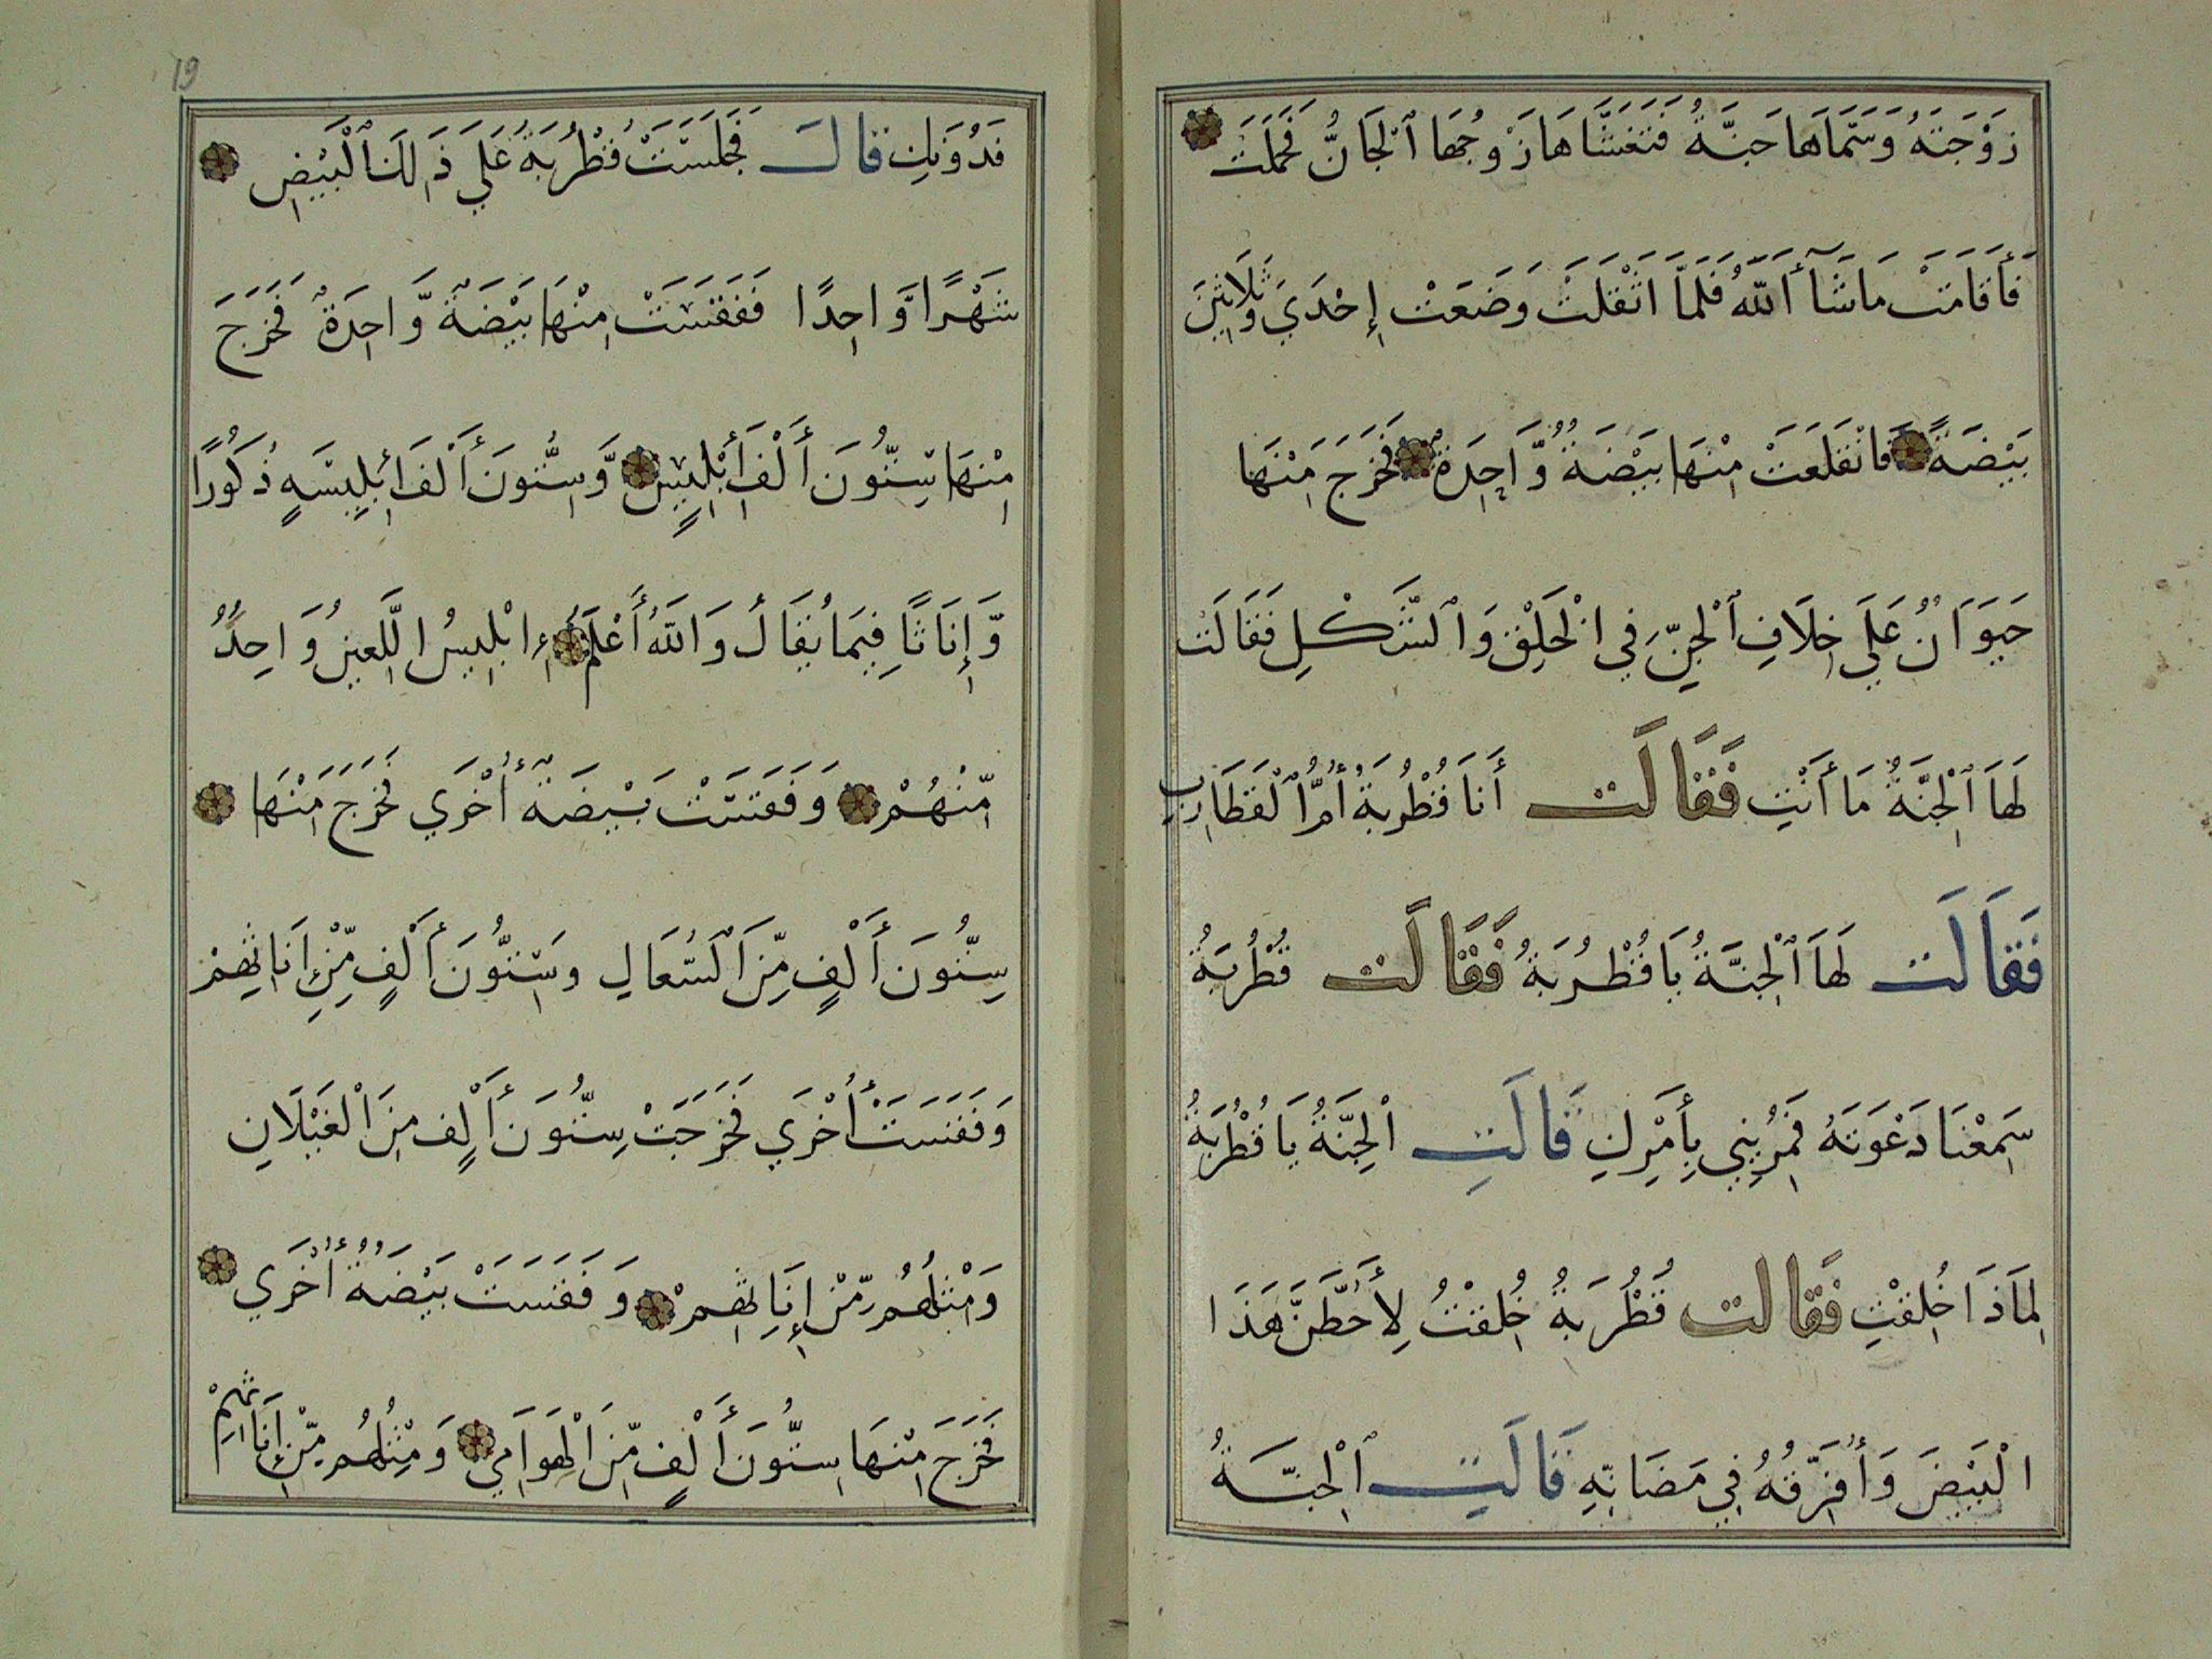 زَوْجَتَهُ وَسَمَّاهَا جَنَّةُ فَتَغَشَّاهَا زَوْجُهَا ٱلْجَانُّ فَحَمَلَتْ
فَأَقَامَتْ مَا شَآءَ ٱللَّهُ فَلَمَّا اَثْقَلَتْ وَضَعَتْ إِحْدَي وَثَلَاثِينَ
بَيْضَةً فَانْفَلَقَتْ مِنْهَا بَيْضَةٌ وَّاحِدَةٌ فَخَرَجَ مِنْهَا
حَيَوَانٌ عَلَي خِلَافِ ٱلْجِنِّ فِي الْخَلِقْ وَٱلشَّكْلِ فَقَالَتْ
لَهَا ٱلْجِنَّةُ مَا أَنْتِ فَقَالَتْ أَنَا قُطْرُبَةُ أُمُّ ٱلْقَطَارِبِ
فَقَالَتْ لَهَا ٱلْجِنَّةُ يَا قُطْرُبَةُ فَقَالَتْ قُطْرُبَةُ
سَمِعْنَا دَعْوَتَهُ فَمُرِينِي بِأَمْرِكِ قَالَتِ الْجِنَّةُ يَا قُطْرُبَةُ
لِمَاذَا خُلِقْتِ فَقَالَتْ قُطْرُبَةُ خُلِقْتُ لِأَحُطَّنَّ هَذَا
الْبَيْضَ وَأُفَرِّقُهُ فِي مَضَانِّهِ قَالَتِ ٱلْجِنَّةُ
19
فَدُوَنَكِ قَالَ فَجَلَسَتْ قُطْرُبَةُ عَلَي ذَلِكَ ٱلْبَيْضِ
شَهْرًا وَّاحِدًا فَفَقَسَتْ مِنْهَا بَيْضَةٌ وَّاحِدَةٌ فَخَرَجَ
مِنْهَا سِتُّونَ أَلْفَ إِبْلِيسٍ وَّسِتُّونَ أَلْفَ إِبْلِيسَةٍ ذُكُورًا
وَّإِنَاثًا فِيمَا يُقَالُ وَاللَّهُ أَعْلَمُ إِبْلِيسُ اللَّعِينُ وَاحِدٌ
مِّنْهُمْ وَفَقَسَتْ بَيْضَةٌ أُخْرَي فَخَرَجَ مِنْهَا
سِتُّونَ أَلْفٍ مِّنَ السَّعَالِي وَسِتُّونَ أَلْفٍ مِّنْ إِنَاثِهِمْ
وَفَقَسَتْ أُخْرَي فَخَرَجَتْ سِتُّونَ أَلْفٍ مِنَ الْغَيْلَانِ
وَمِثْلُهُمْ مِّنْ إِنَاثِهِمْ وَفَقَسَتْ بَيْضَةٌ أُخْرَي
فَخَرَجَ مِنْهَا سِتُّونَ أَلْفٍ مِّنَ الْهَوَامِي وَمِثْلُهُمْ مِّنْ إِنَاثِهِمْ